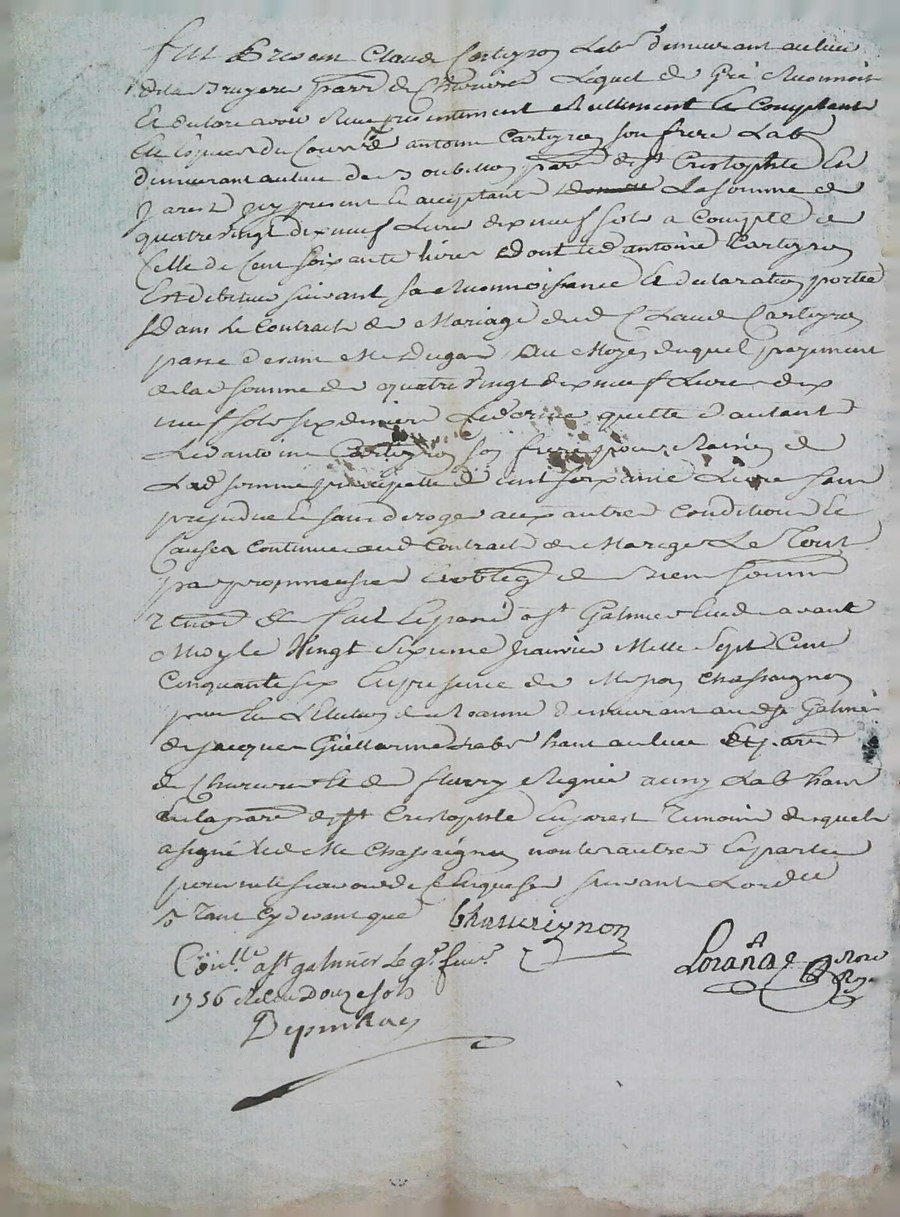 fut Present Claude Carteyron Labr demeurant au lieu
de la Bruyere parr de Chevrière Lequel de Gré Reconnoit
et declare avoir Receu presentement Reellement et Comptant
et espece du Cours d antoine Carteyron son frere Labr
demeurant au lieu de parr de St Cristophle en
Jarest icy present et acceptant La somme de
quatre vingt dix neuf Livre dix neuf sols a Compte de
Celle de Cent soixante livres dont led antoine Carteyron
Est debiteur suivant sa Reconnoissance et declaration portée
Dans le Contract de Mariage dud Claude Carteyron
passé devant Me Dugas Au Moyen duquel payement
de la somme de quatre vingt dix neuf Livre dix
neuf sols six denier quitte d'autant
Led antoine Carteyron son frere pour Raison de
Lad somme principalle de cent soixante Livre sans
prejudice et sans deroger aux autre Condition et
Causes Contenue aud Contract de Mariage Le Tout
par promesse oblig de Bien soumis
Renon de fait et passé a St Galmier Etude avant
Midy le Vingt Sixieme Janvier Mille Sept Cent
Cinquante six En presence de Chassaignon
pour En L'Election de Roanne demeurant aud St Galmier
de Jacques Guillarme Labr hant au lieu et parr
de Chevriere et de fleury Regnié aussy Labr hant
en la parr de St Cristophle En Jarest Temoin desquels
a signé led Me Chassaignon non les autres et partie
pour ne sçavoir de ce Enquis suivant Lord
Tant Cy devant que Chassaignon
Conlle a St galmier le 9e fevr
1756 Receu Douze sols
Depinhac
Loranças Nore Roy